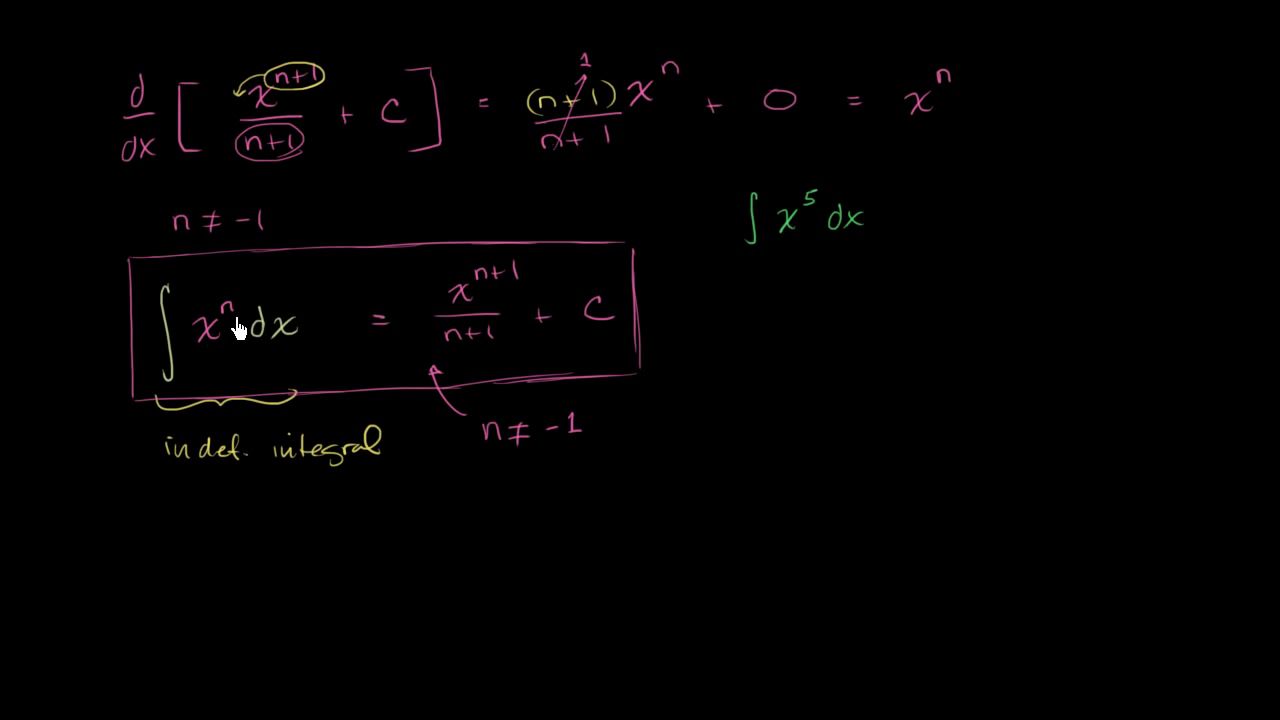 d/dx [ x^(n+1)/(n+1) + C ] = (n+1)x^n/(n+1) 1 + 0 = x^n
n ≠ -1
∫ x^5 dx
∫ x^n dx = x^(n+1)/(n+1) + C
indef. integral
n ≠ -1